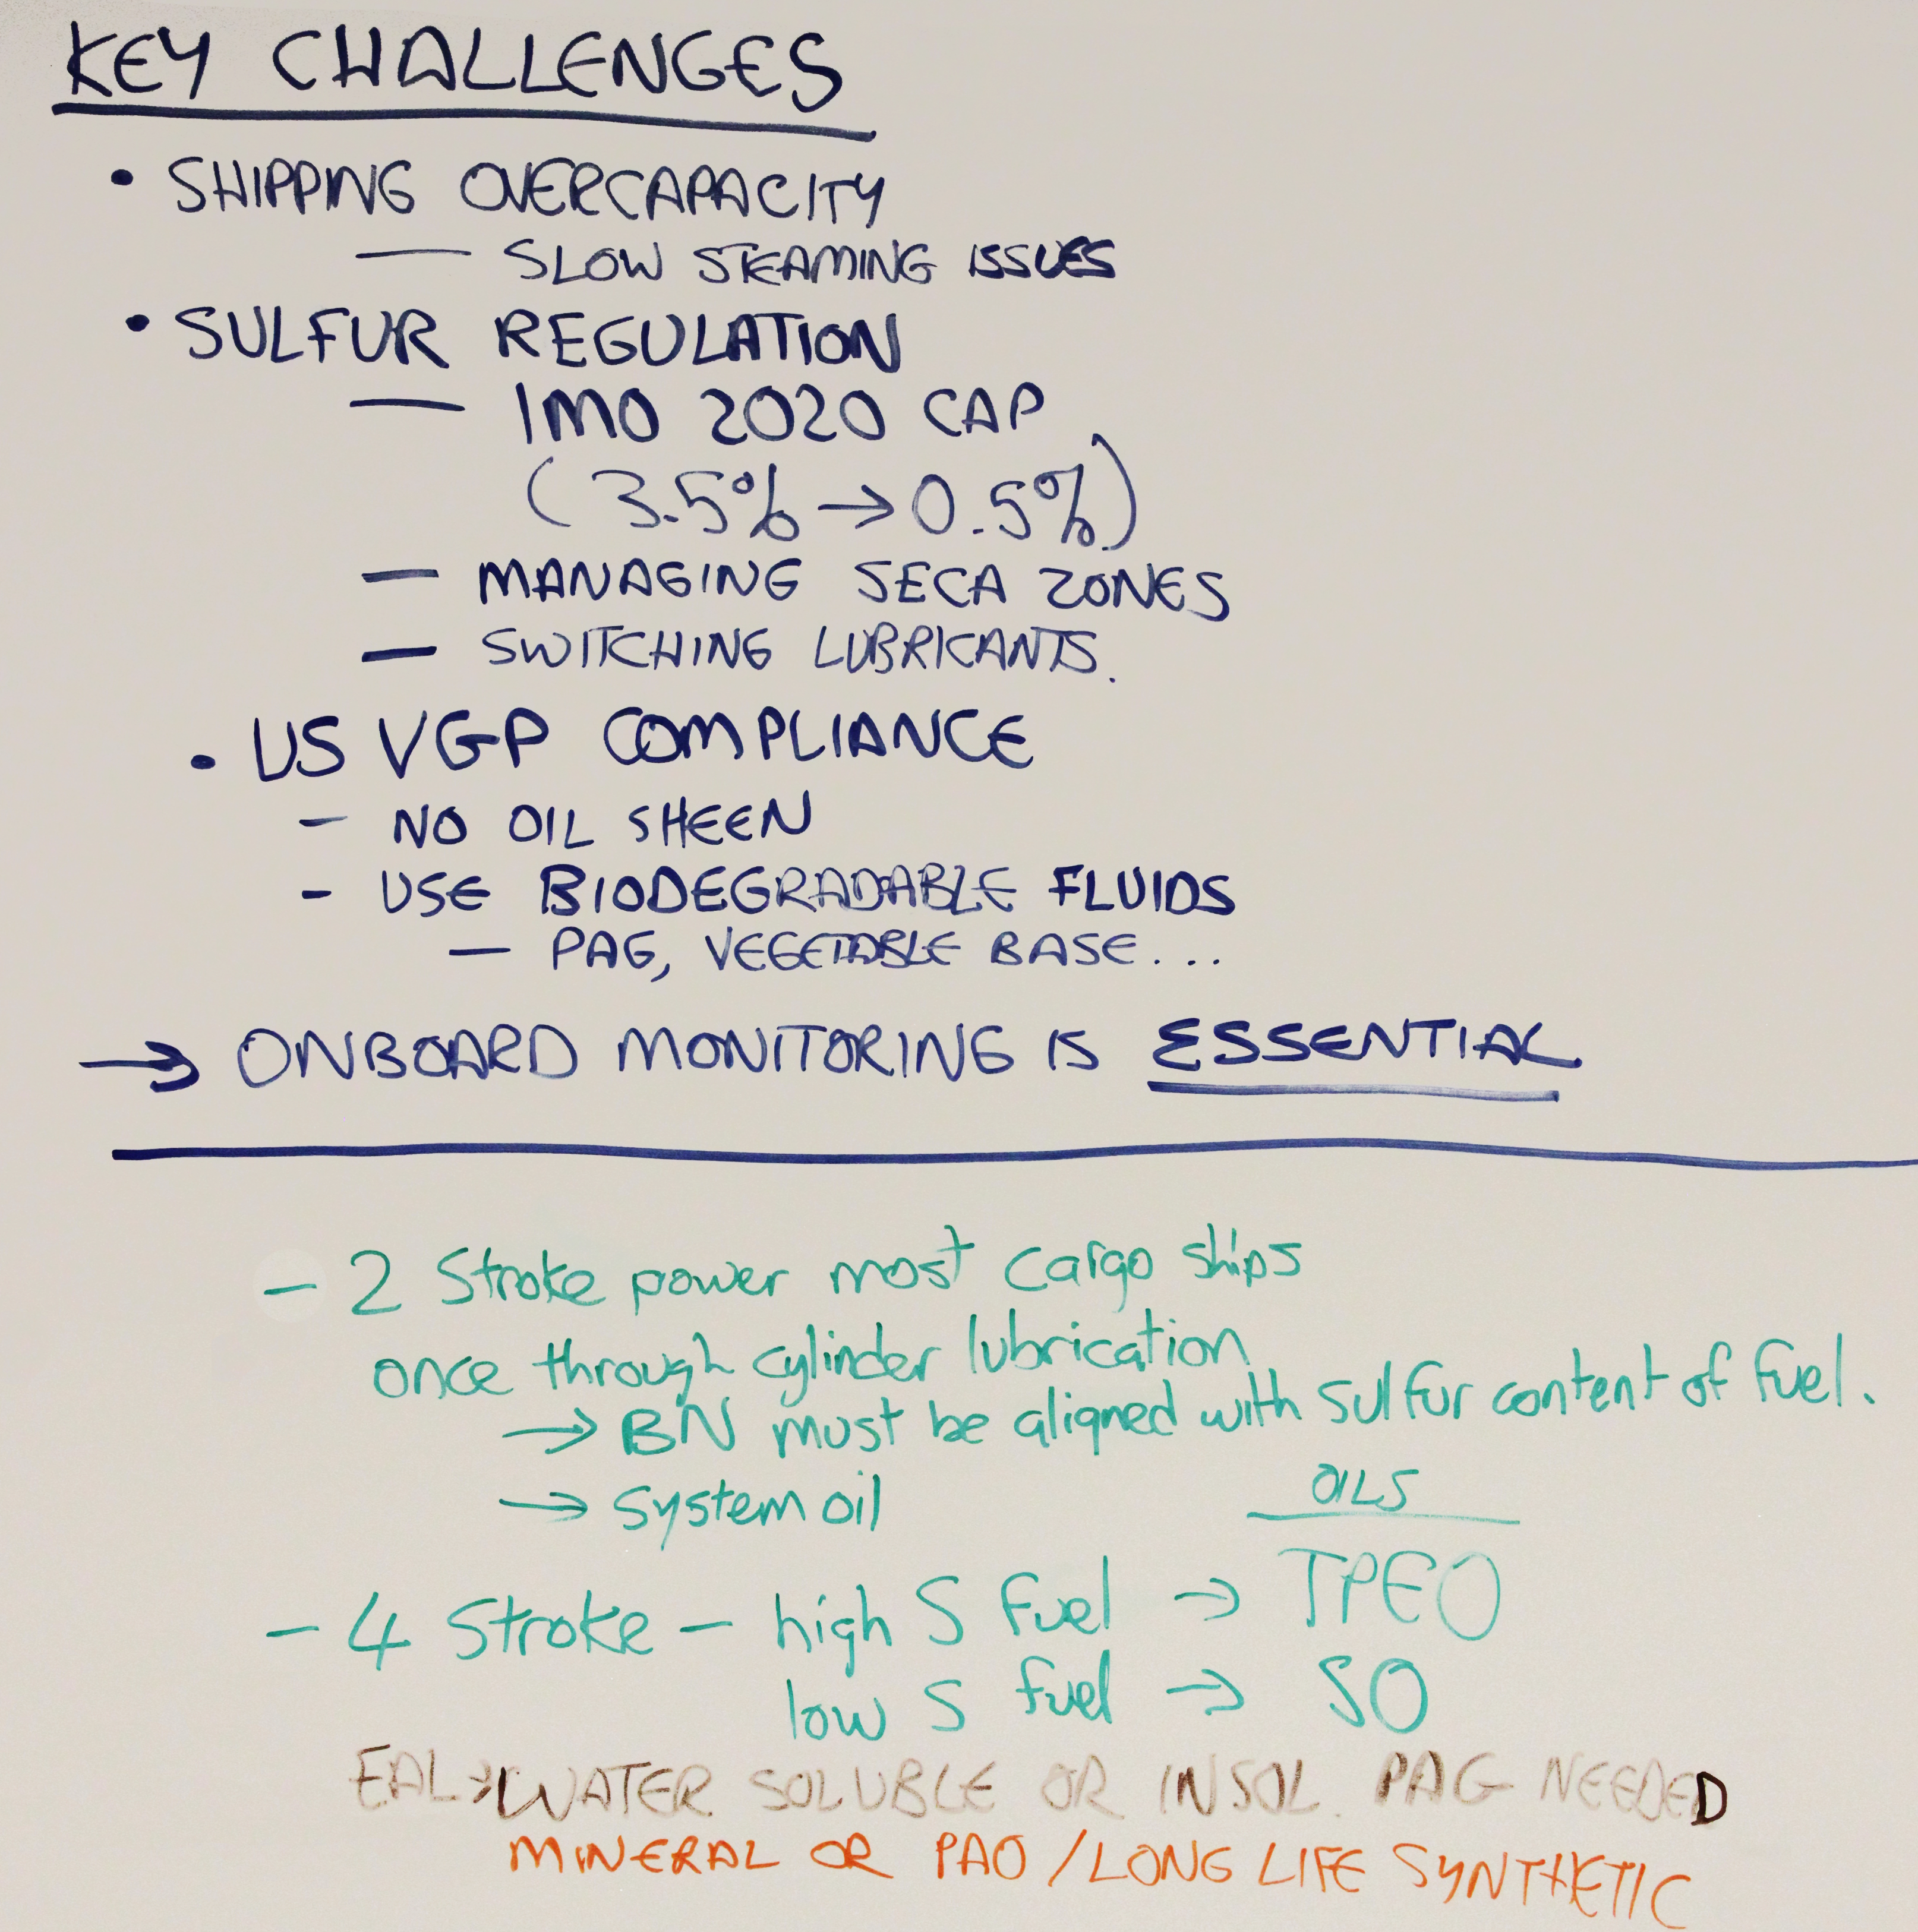 KEY CHALLENGES
• SHIPPING OVERCAPACITY
— SLOW STEAMING ISSUES
• SULFUR REGULATION
— IMO 2020 CAP
(3.5% → 0.5%)
— MANAGING SECA ZONES
— SWITCHING LUBRICANTS.
• US VGP COMPLIANCE
- NO OIL SHEEN
- USE BIODEGRADABLE FLUIDS
— PAG, VEGETABLE BASE...
→ ONBOARD MONITORING IS ESSENTIAL
- 2 Stroke power most cargo ships
once through cylinder lubrication
→ BN must be aligned with sulfur content of fuel.
→ System oil
OILS
- 4 Stroke - high S fuel → TPEO
low S fuel → SO
EAL → WATER SOLUBLE OR INSOL. PAG NEEDED
MINERAL OR PAO / LONG LIFE SYNTHETIC